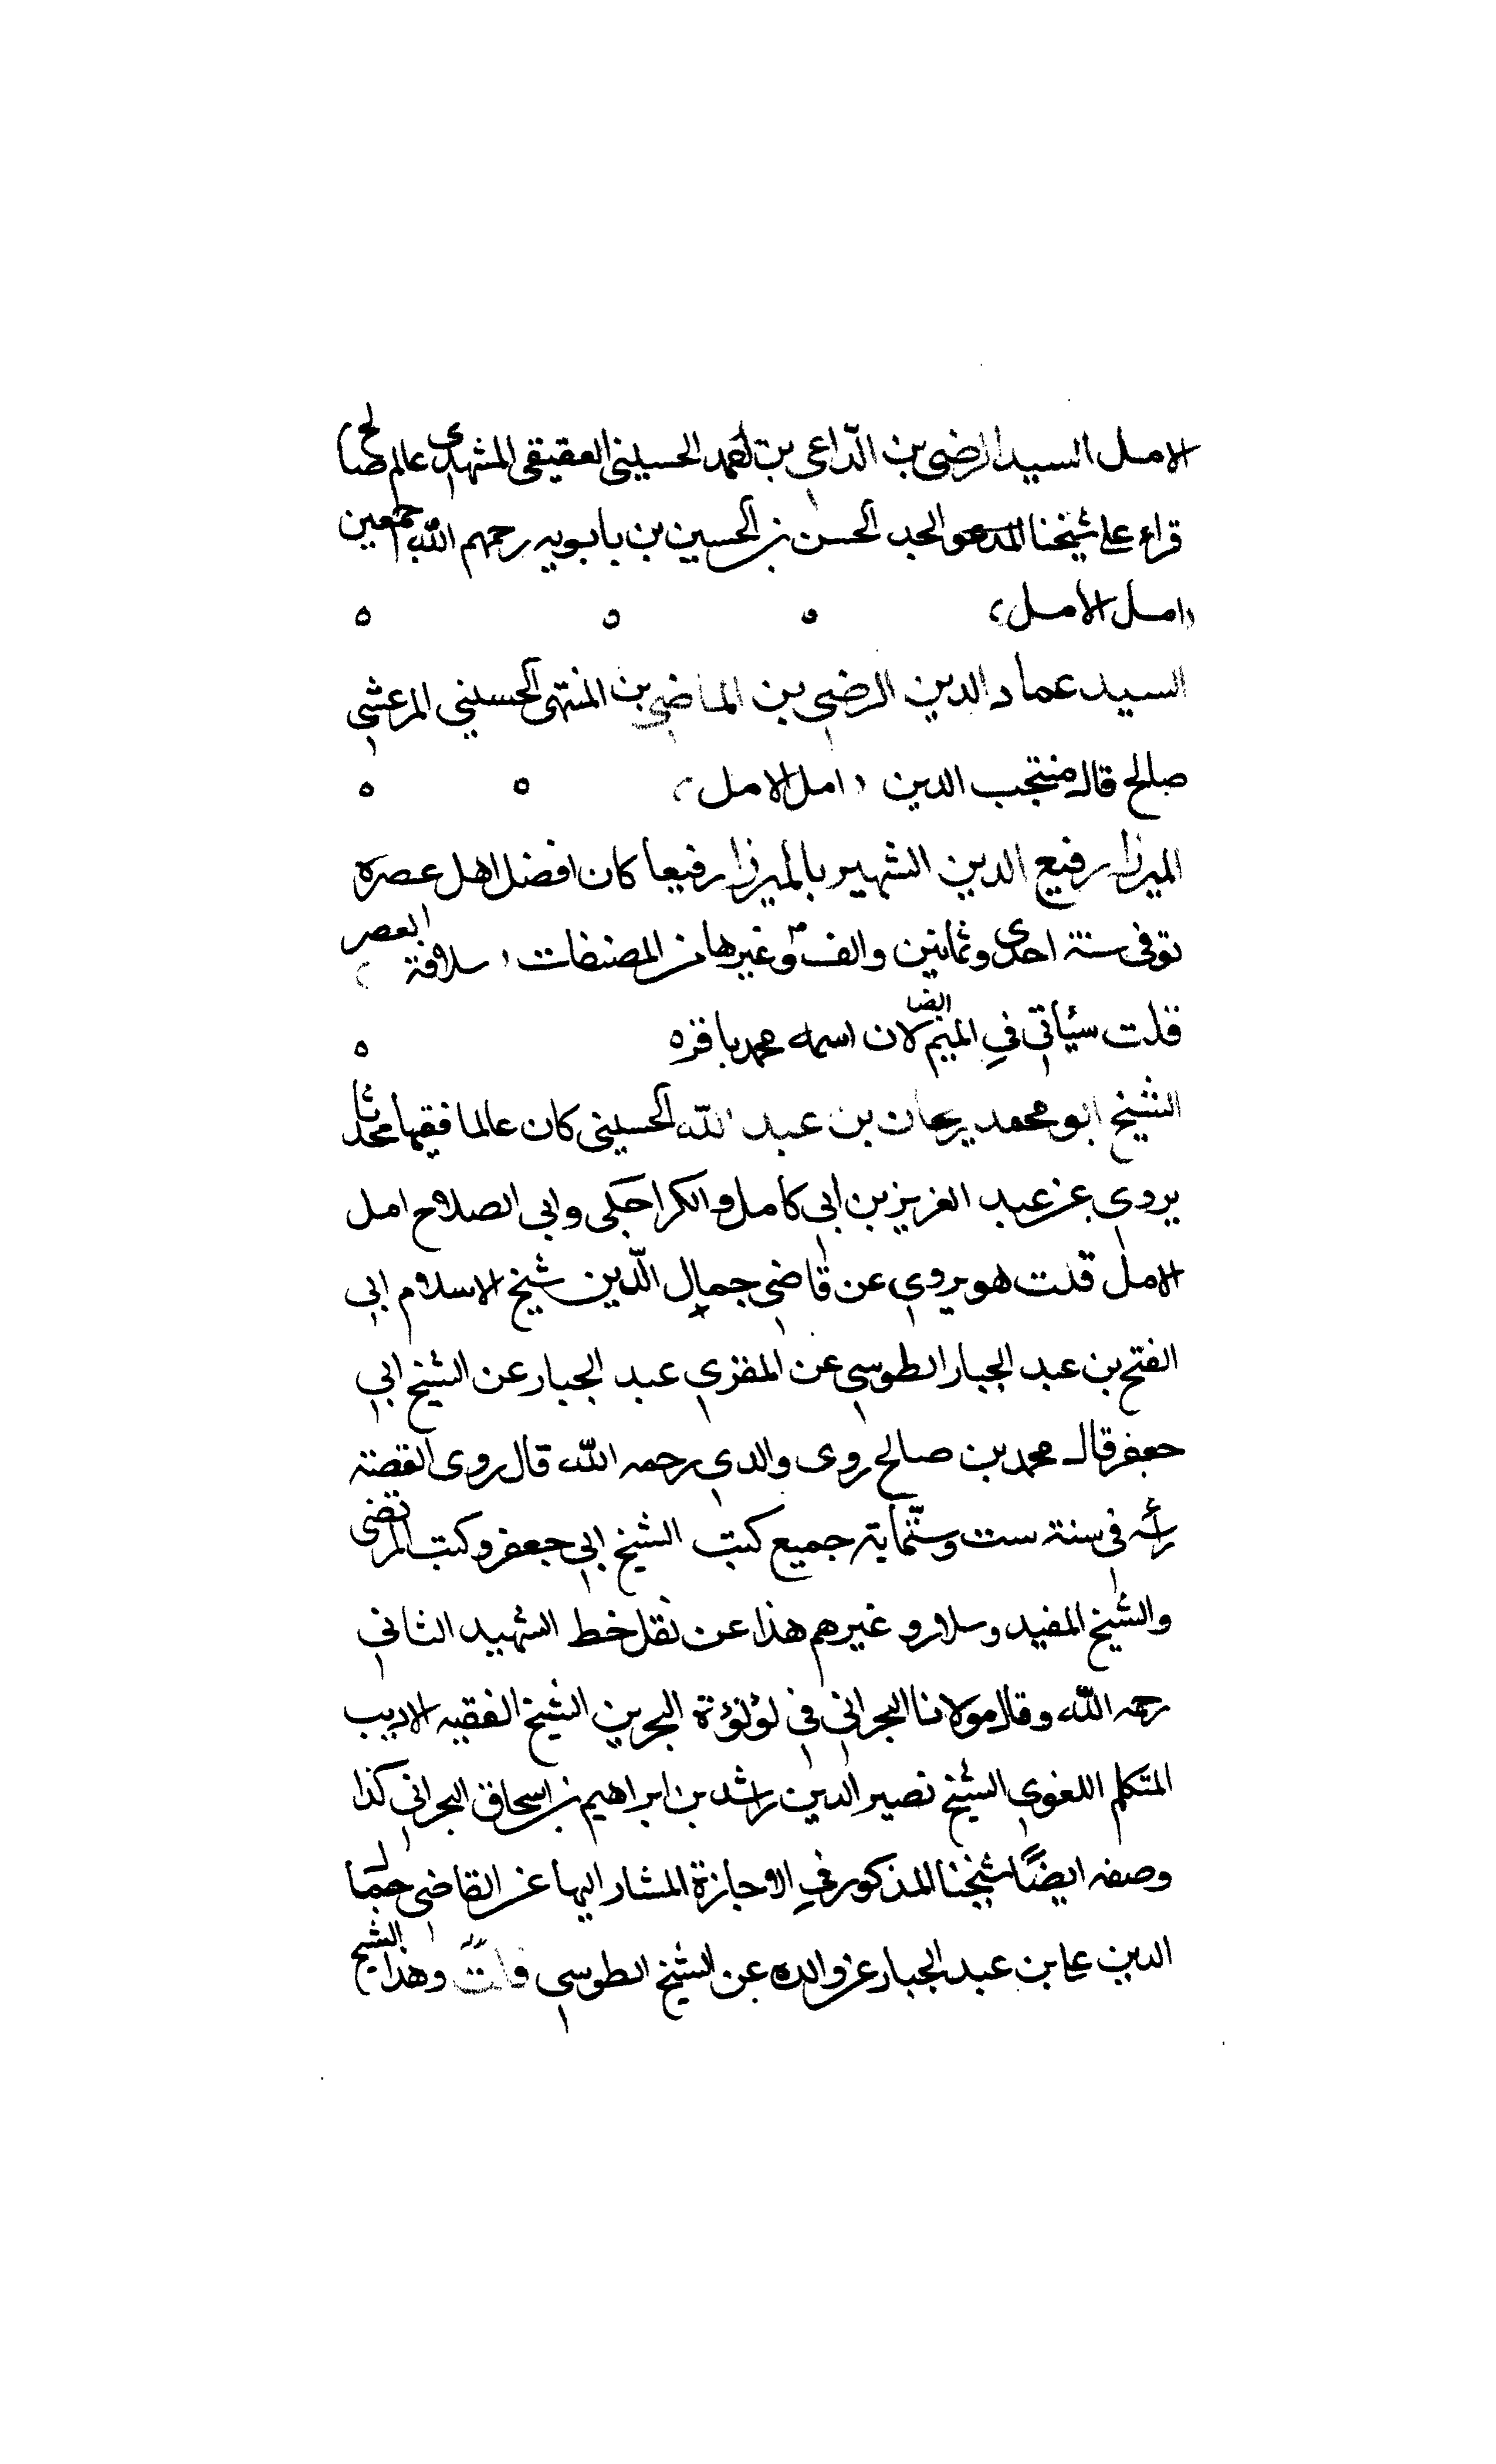 الامل السيد الرضي بن الداعي بن احمد الحسيني العقيقي المشهدي عالم صالح
قراء على شيخنا المدعو الجد الحسن بن الحسين بن بابويه رحمهم الله اجمعين
(امل الامل) ه ه ه
السيد عماد الدين الرضي بن الماضي بن المنتهى الحسيني المرعشي
صالح قال منتجب الدين (امل الامل) ه ه
الميرزا رفيع الدين الشهير بالميرزا رفيعا كان افضل اهل عصره
توفى سنة احدى وثمانين والف وغيرها من المصنفات (سلافة العصر)
قلت سيأتي في الميم ايضا لان اسمه محمد باقر ه ه
الشيخ ابو محمد ريحان بن عبد الله الحسيني كان عالما فقيها محدثا
يروي عن عبد العزيز بن ابي كامل والكراجكي وابي الصلاح امل
الامل قلت هو يروي عن قاضي جمال الدين شيخ الاسلام ابي
الفتح بن عبد الجبار الطوسي عن المقري عبد الجبار عن الشيخ ابي
جعفر قال محمد بن صالح روى والدي رحمه الله قال روى القصة
في سنة ست وستمأية جميع كتب الشيخ ابي جعفر وكتب المرتضى
والشيخ المفيد وسلار و غيرهم هذا عن نقل خط الشهيد الثاني
رحمه الله وقال مولانا البحراني في لؤلؤة البحرين الشيخ الفقيه الاديب
المتكلم اللغوي الشيخ نصير الدين راشد بن ابراهيم بن اسحاق البحراني كذا
وصفه ايضًا شيخنا المذكور في الاجازة المشار اليها عن القاضي جمال
الدين علي بن عبد الجبار عن والده عن الشيخ الطوسي قلت وهذا الشيخ